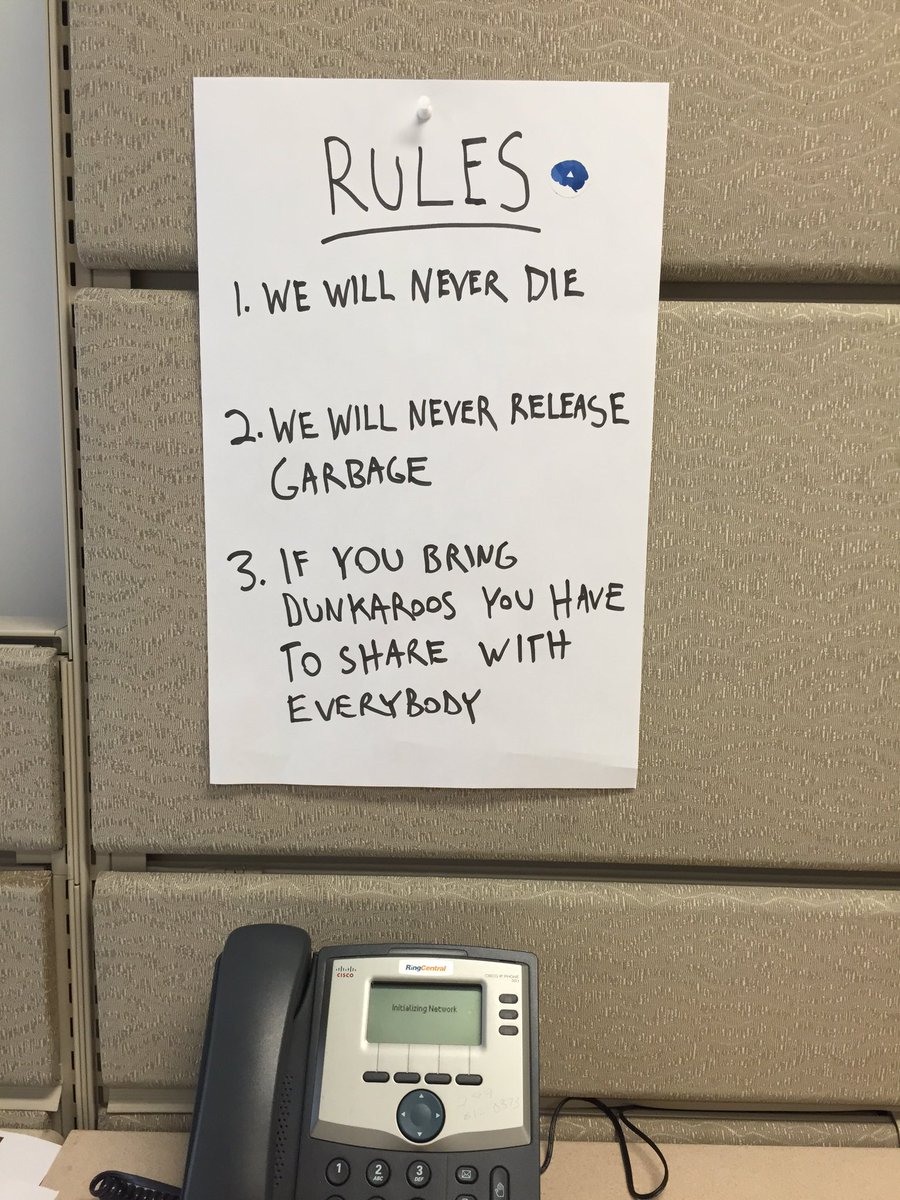 RULES
1. WE WILL NEVER DIE
2. WE WILL NEVER RELEASE
GARBAGE
3. IF YOU BRING
DUNKAROOS YOU HAVE
TO SHARE WITH
EVERYBODY
CISCO
RingCentral
CISCO IP PHONE
Initializing Network
1
2
ABC
3
DEF